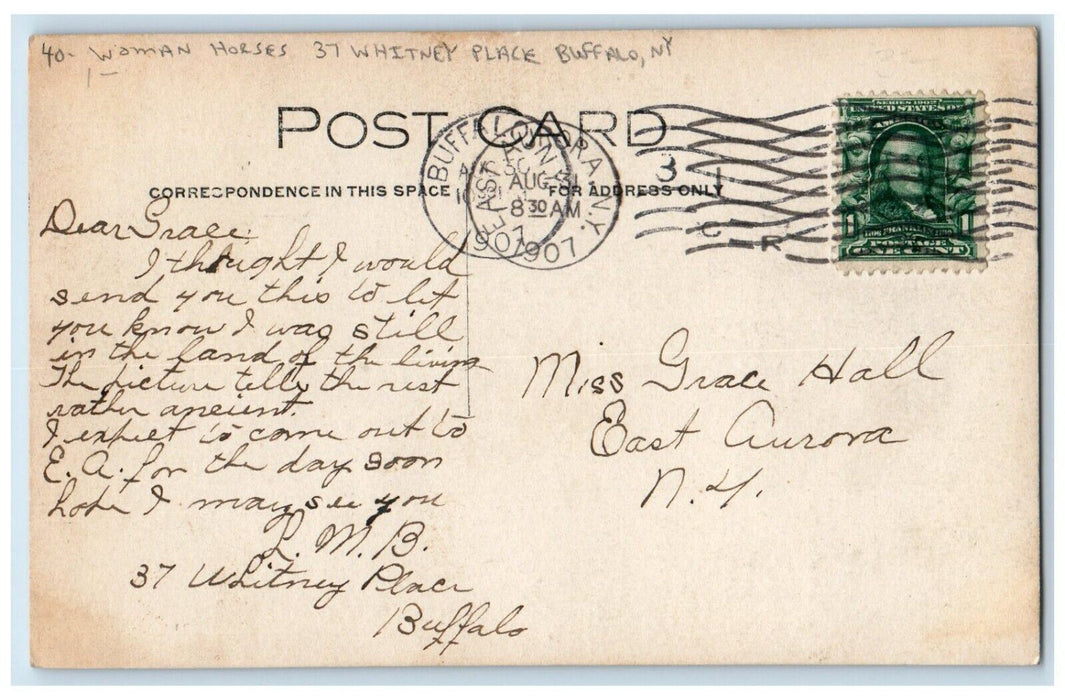 40- WOMAN HORSES 37 WHITNEY PLACE BUFFALO, NY
1-
POST CARD
CORRESPONDENCE IN THIS SPACE
FOR ADDRESS ONLY
BUFFALO, N.Y.
AUG 30
1907
EAST AURORA N.Y.
AUG 31
8 30 AM
1907
3
C R
SERIES 1902
UNITED STATES OF
AMERICA
1 1
POSTAGE
ONE CENT
Dear Grace:
I thought I would
send you this to let
you know I was still
in the land of the living
The picture tells the rest
rather ancient.
I expect to come out to
E. A. for the day soon
hope I may see you
L. M. B.
37 Whitney Place
Buffalo
Miss Grace Hall
East Aurora
N.Y.